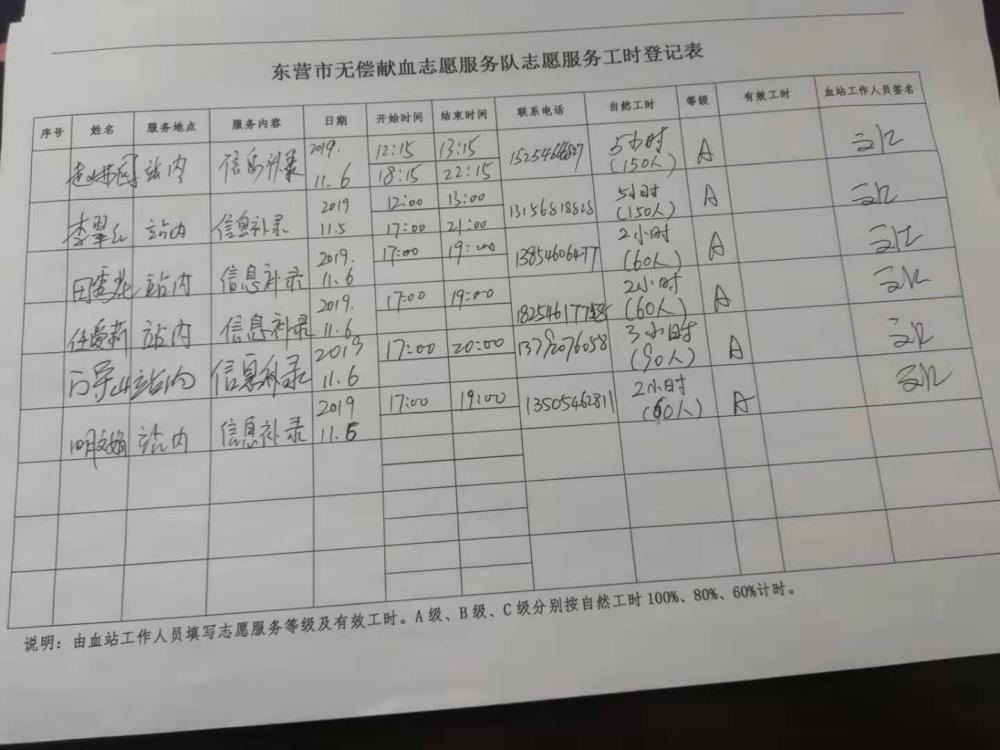 东营市无偿献血志愿服务队志愿服务工时登记表
序号 姓名 服务地点 服务内容 日期 开始时间 结束时间 联系电话 自然工时 等级 有效工时 血站工作人员签名
站内 信息补录 2019. 11.6 12:15 13:15 18:15 22:15 5小时 (150人) A
李翠红 站内 信息补录 2019 11.5 12:00 13:00 17:00 21:00 13156818828 5小时 (150人) A
站内 信息补录 2019. 11.6 17:00 19:00 13854606477 2小时 (60人) A
任爱新 站内 信息补录 2019. 11.6 17:00 19:00 2小时 (60人) A
站内 信息补录 2019 11.6 17:00 20:00 13792076058 3小时 (90人) A
站内 信息补录 2019 11.5 17:00 19:00 13505462811 2小时 (60人) A
说明：由血站工作人员填写志愿服务等级及有效工时。A级、B级、C级分别按自然工时100%、80%、60%计时。